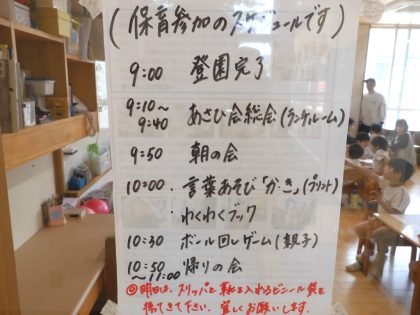 (保育参加のスケジュールです)
9:00 登園完了
9:10〜
9:40 あさひ会総会(ランチルーム)
9:50 朝の会
10:00 ・言葉あそび「か・き」(プリント)
・わくわくブック
10:30 ボール回しゲーム(親子)
10:50
〜11:00 帰りの会
◎明日は、スリッパと靴を入れるビニール袋を
持ってきて下さい。宜しくお願いします。